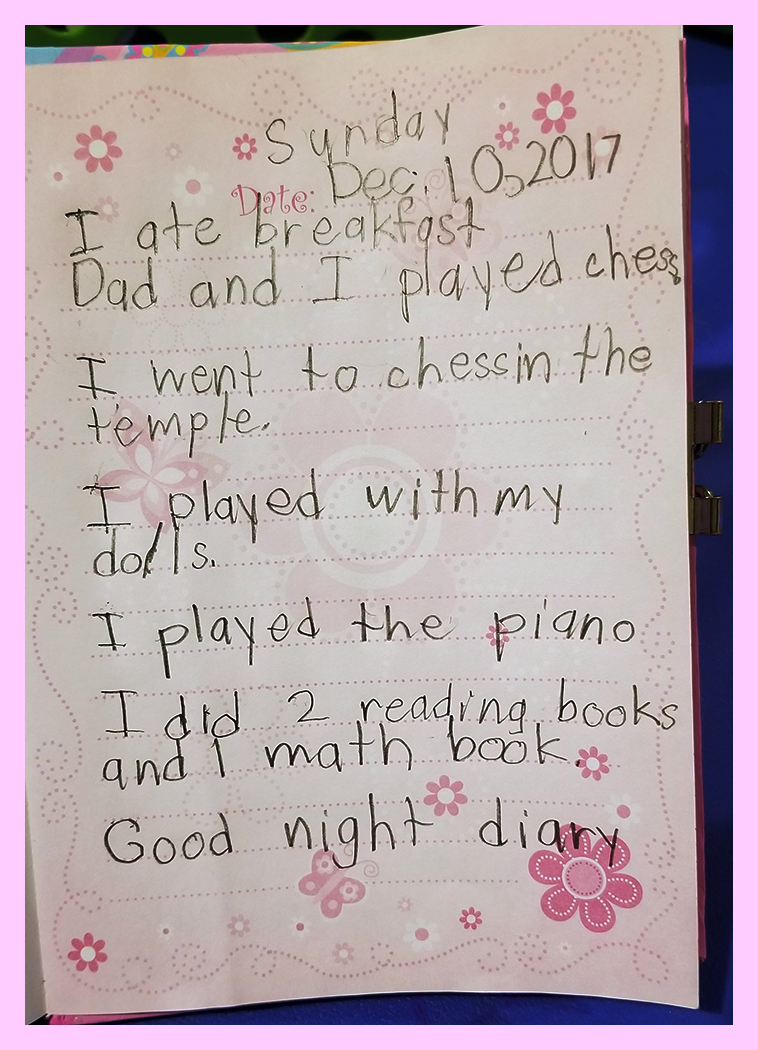 Sunday
Date: Dec. 10, 2017
I ate breakfast
Dad and I played chess
I went to chess in the
temple.
I played with my
dolls.
I played the piano
I did 2 reading books
and 1 math book.
Good night diary